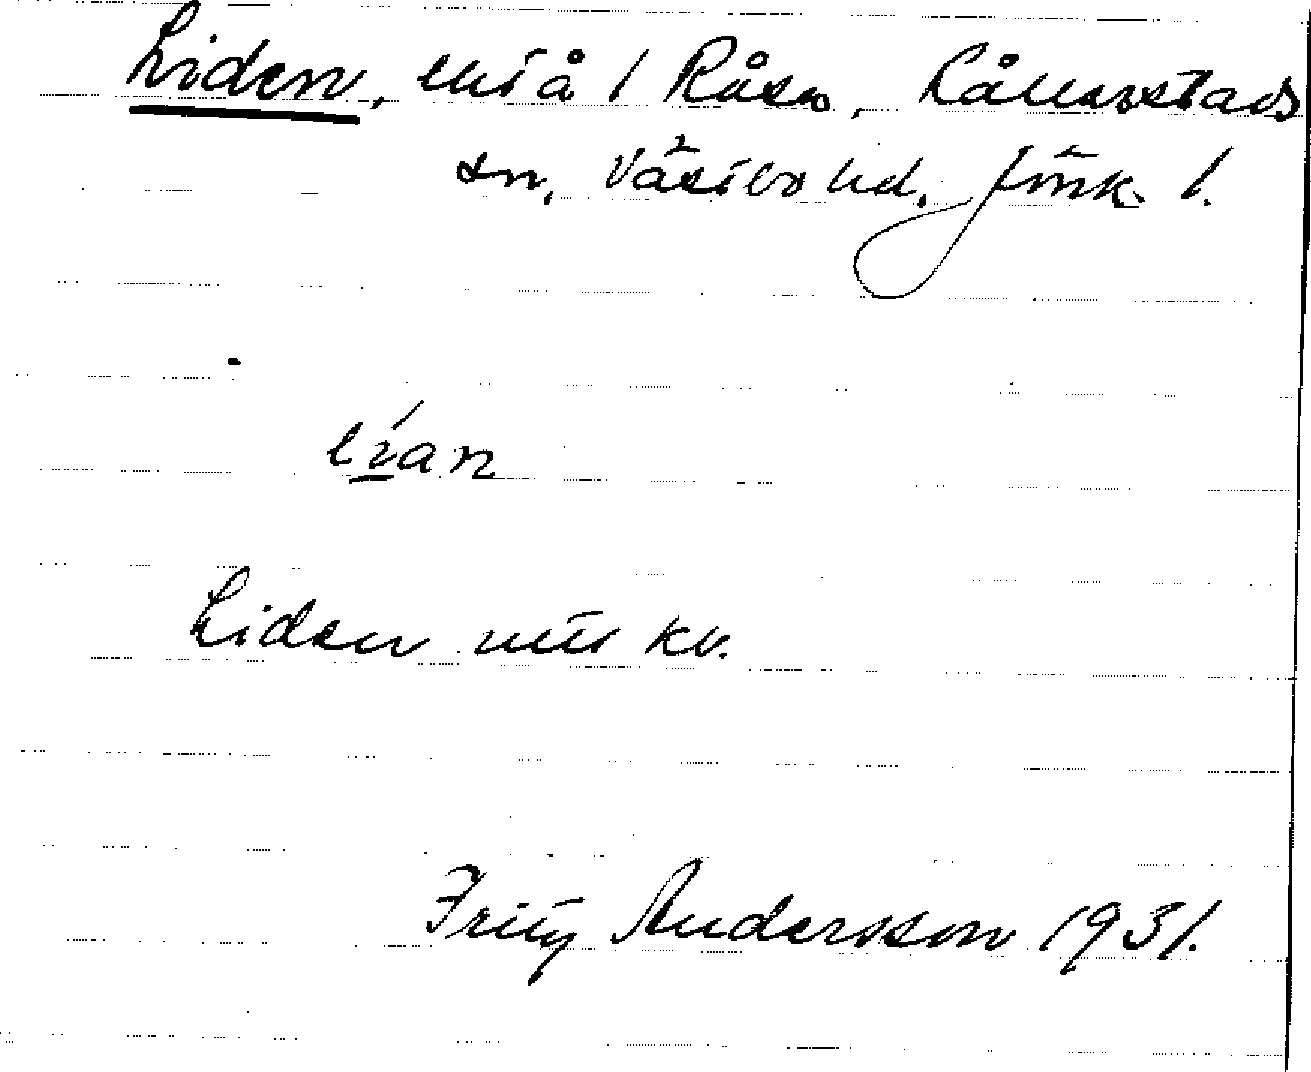 Liden, utså / Råsa, Kållerstads
sn, Västbo hd, Jönk. l.
lían
Liden utör kv.
Fritz Andersson 1931.